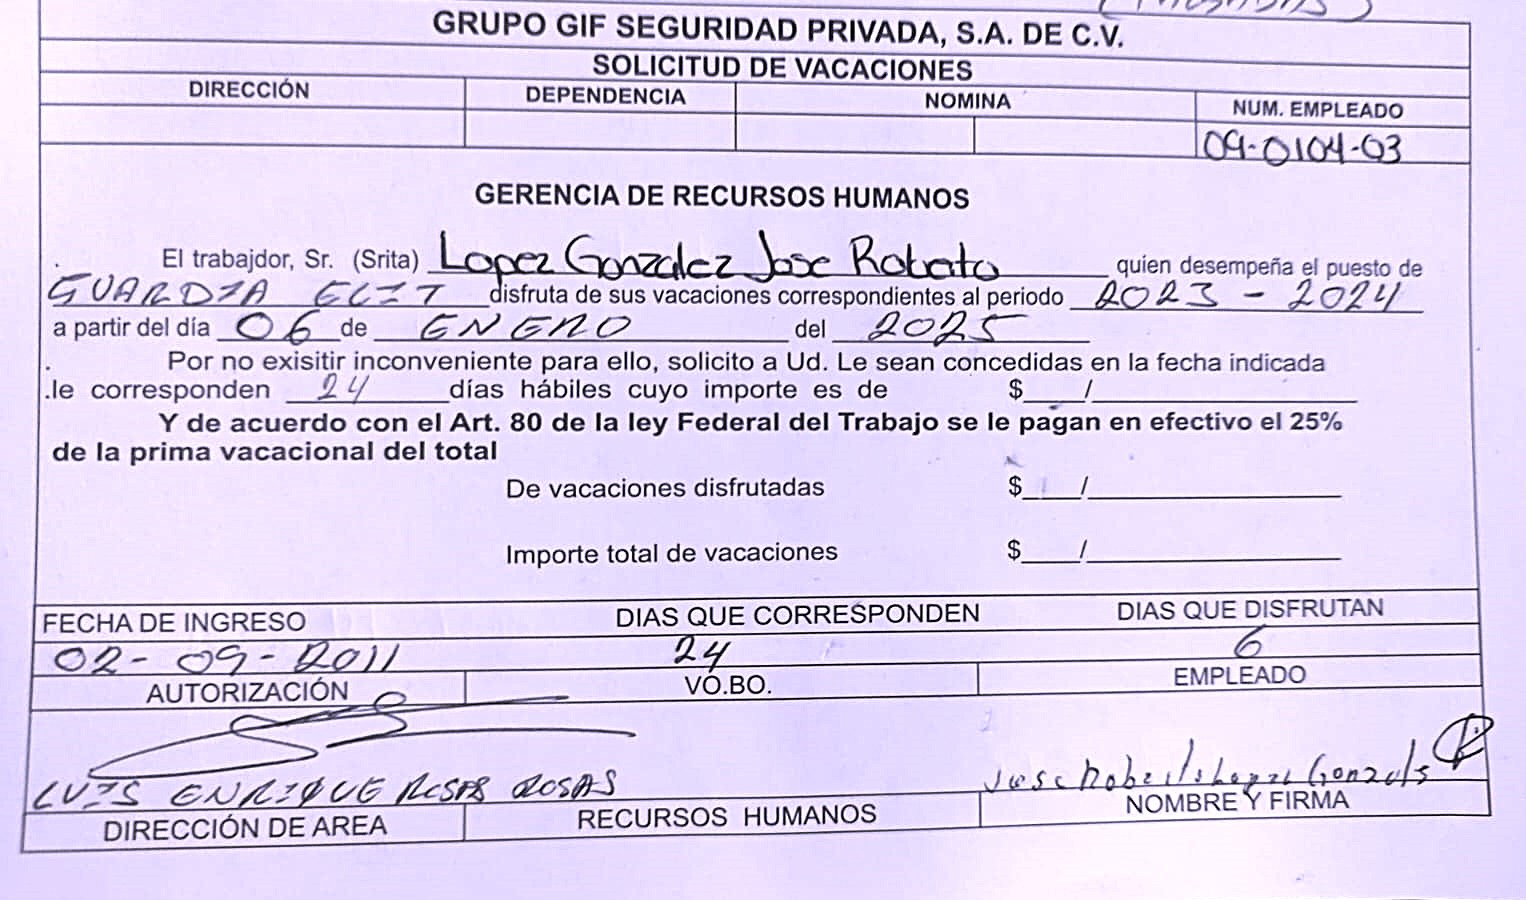 GRUPO GIF SEGURIDAD PRIVADA, S.A. DE C.V.
SOLICITUD DE VACACIONES
DIRECCIÓN DEPENDENCIA NOMINA NUM. EMPLEADO
09-0104-03
GERENCIA DE RECURSOS HUMANOS
El trabajdor, Sr. (Srita) Lopez Gonzalez Jose Roberto quien desempeña el puesto de
GUARDIA ELIT disfruta de sus vacaciones correspondientes al periodo 2023 - 2024
a partir del día 06 de ENERO del 2025
Por no exisitir inconveniente para ello, solicito a Ud. Le sean concedidas en la fecha indicada
.le corresponden 24 días hábiles cuyo importe es de $ /
Y de acuerdo con el Art. 80 de la ley Federal del Trabajo se le pagan en efectivo el 25%
de la prima vacacional del total
De vacaciones disfrutadas $ /
Importe total de vacaciones $ /
FECHA DE INGRESO DIAS QUE CORRESPONDEN DIAS QUE DISFRUTAN
02-09-2011 24 6
AUTORIZACIÓN VO.BO. EMPLEADO
LUIS ENRIQUE ROSAS ROSAS Jose Roberto Lopez Gonzals
DIRECCIÓN DE AREA RECURSOS HUMANOS NOMBRE Y FIRMA